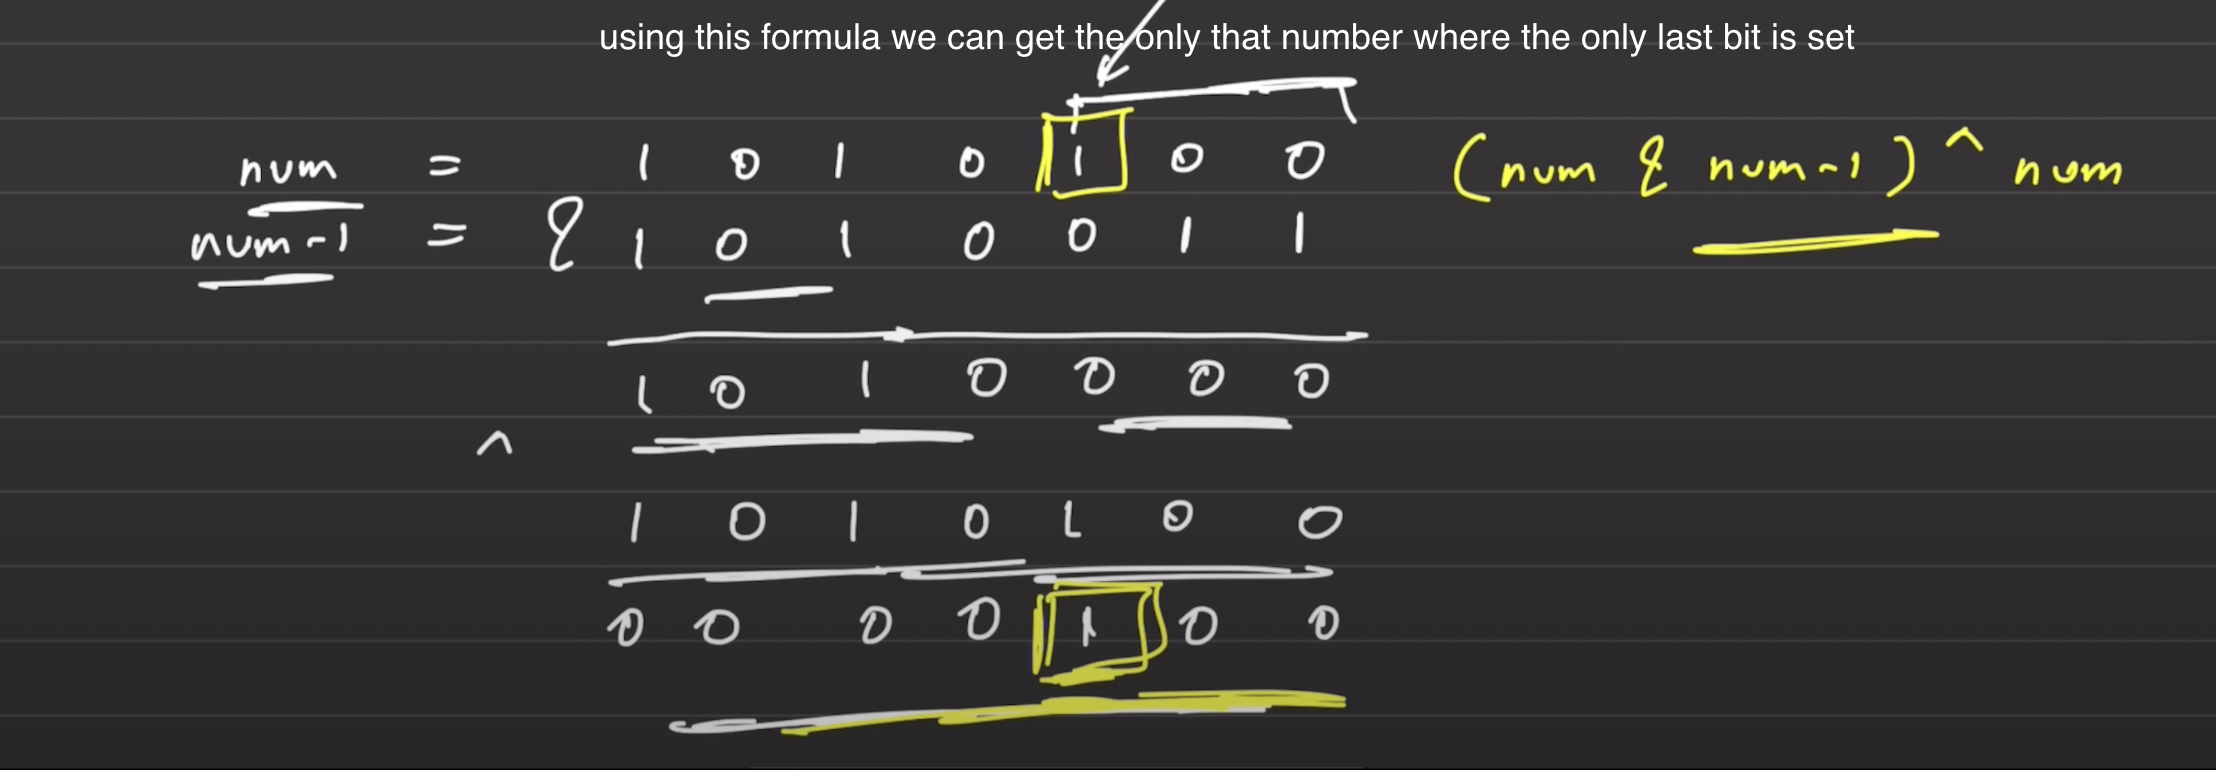 using this formula we can get the only that number where the only last bit is set
num = 1 0 1 0 1 0 0 (num & num-1) ^ num
num-1 = & 1 0 1 0 0 1 1
1 0 1 0 0 0 0
^
1 0 1 0 1 0 0
0 0 0 0 1 0 0